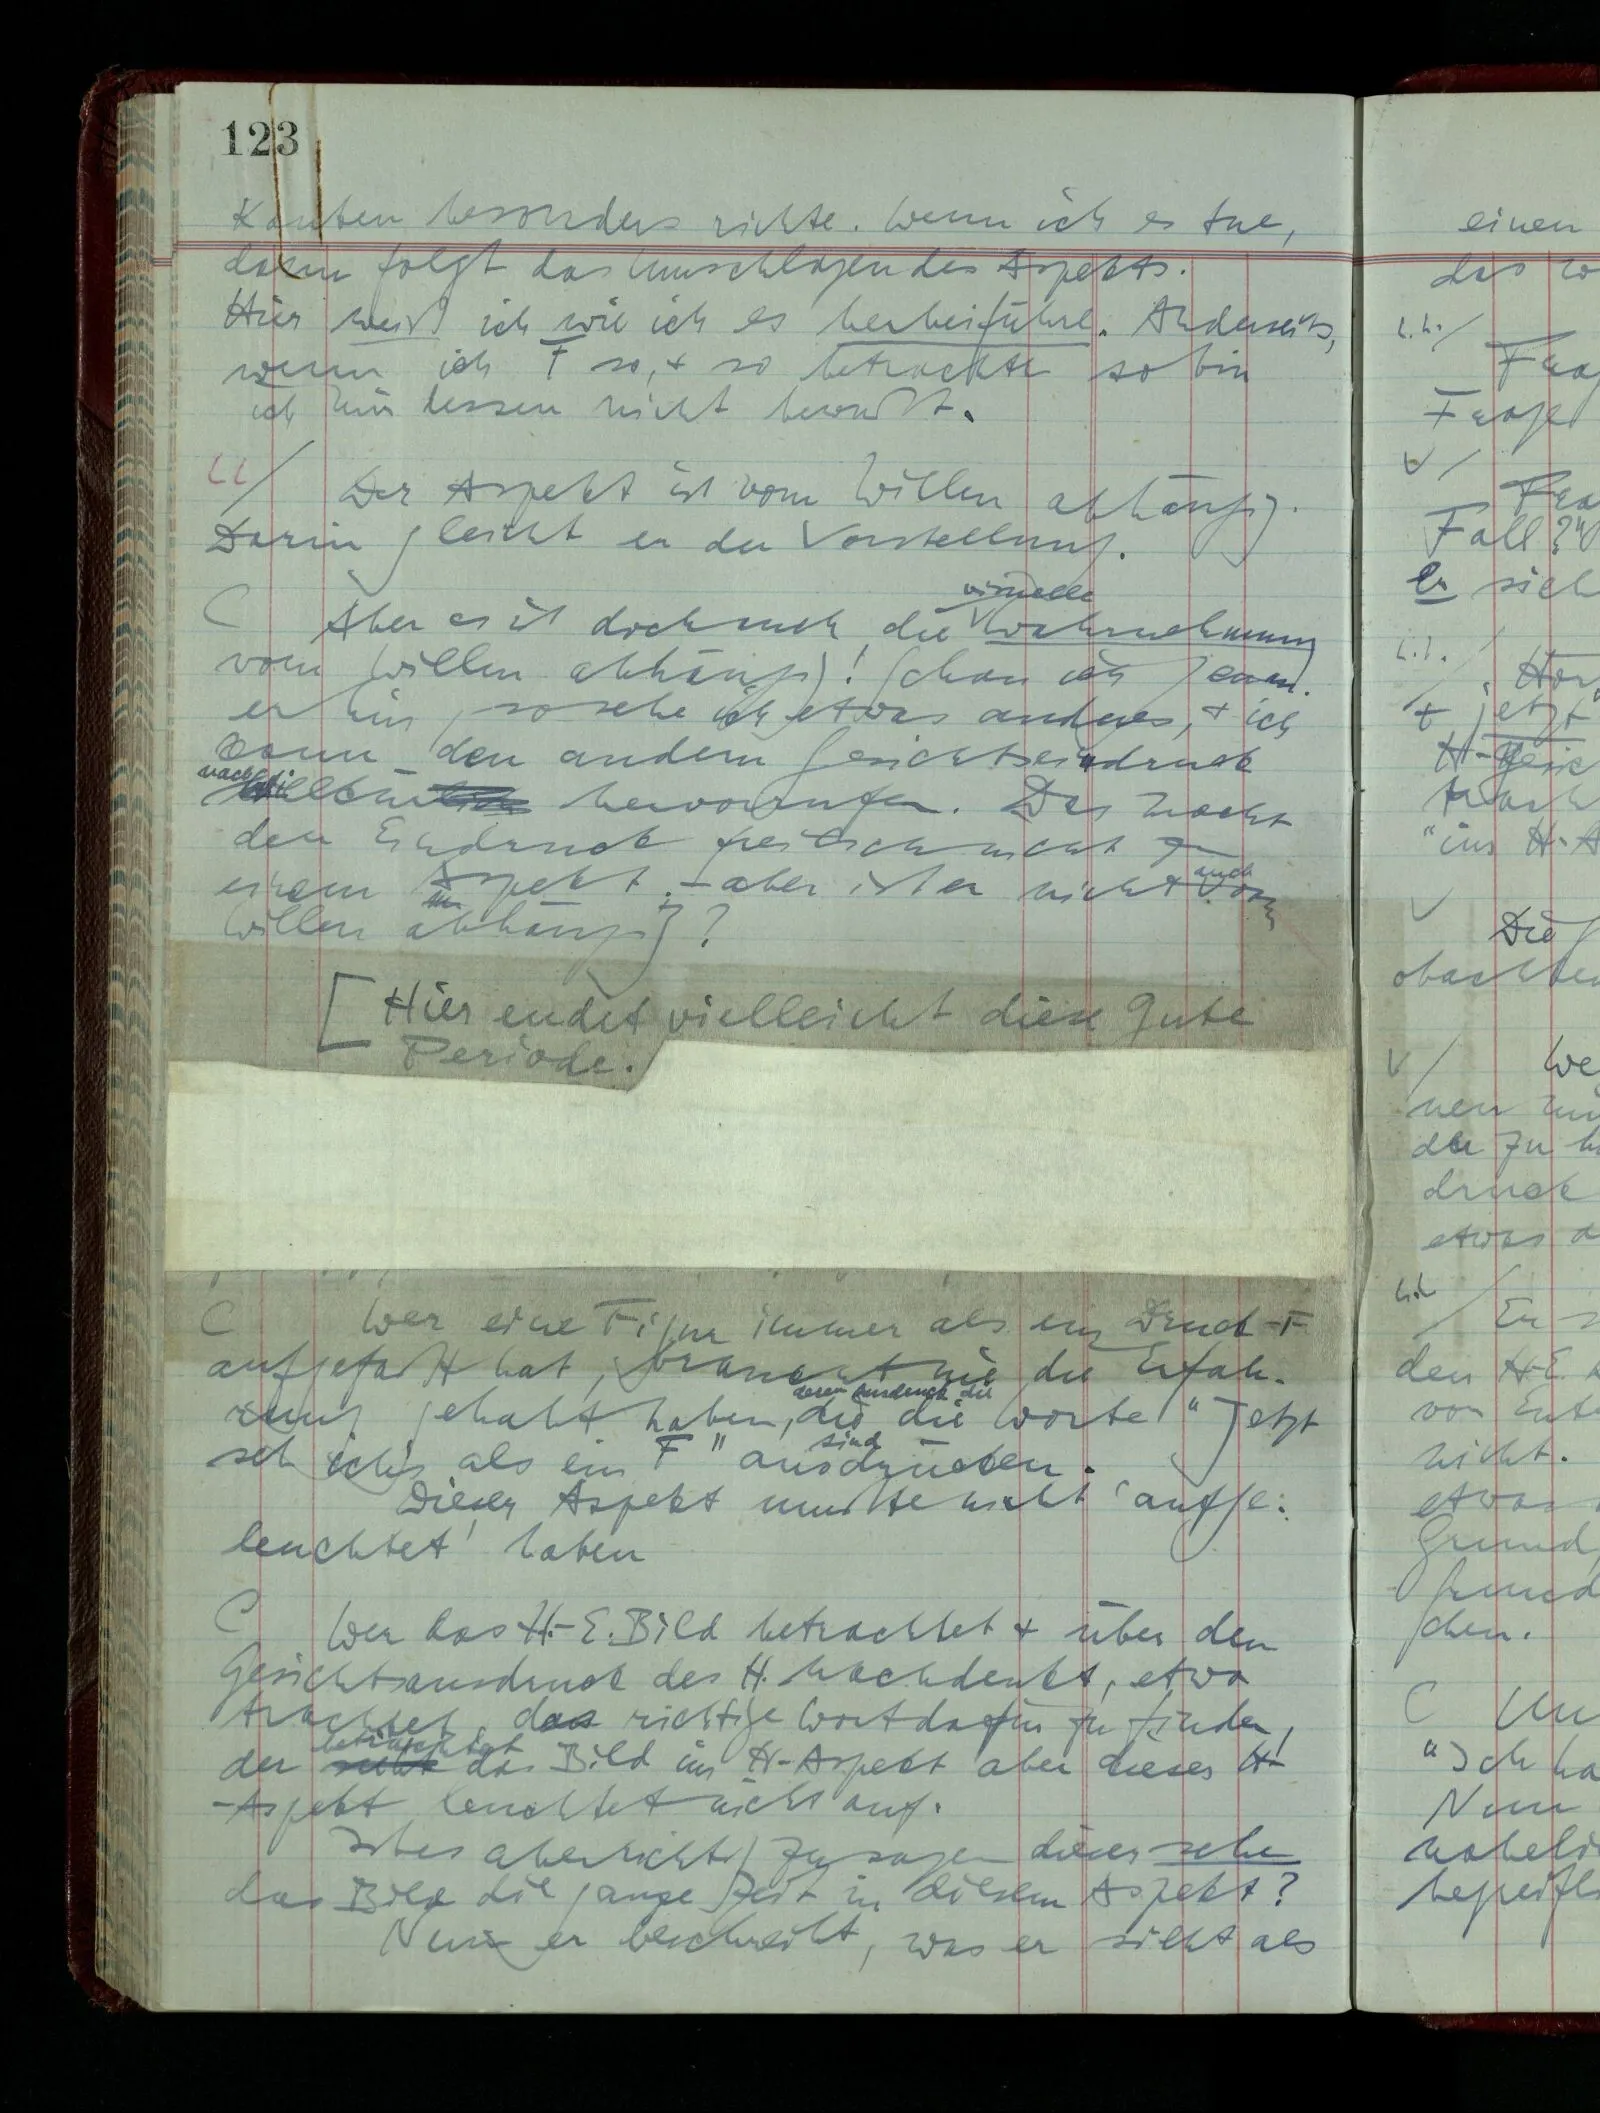 123
Kanten besonders richte. Wenn ich es tue,
dann folgt das Umschlagen des Aspekts.
Hier weiß ich wie ich es herbeiführe. Anderseits,
wenn ich F so, + so betrachte so bin
ich mir dessen nicht bewußt.
Der Aspekt ist vom Willen abhängig.
Darin gleicht er der Vorstellung.
C
visuelle
Aber es ist doch auch die Wahrnehmung
vom Willen abhängig! Schau ich genau-
er hin, so sehe ich etwas anderes, + ich
kann den andern Gesichtseindruck
hervorrufen. Das macht
den Eindruck freilich nicht zu
auch
einem Aspekt, – aber ist er nicht vom
Willen abhängig?
[Hier endet vielleicht diese gute
Periode.
C
Wer eine Figur immer als ein Druck-F
aufgefaßt hat, braucht nie die Erfah-
deren Ausdruck die
rung gehabt haben, die die Worte "Jetzt
sind
seh ich's als ein F" ausdrücken.
Dieser Aspekt mußte nicht 'aufge-
leuchtet' haben
C
Wer das H.-E. Bild betrachtet + über den
Gesichtsausdruck des H. nachdenkt, etwa
trachtet, das richtige Wort dafür zu finden,
betrachtet
der sieht das Bild im H-Aspekt aber dieses H-
-Aspekt leuchtet nicht auf.
Ist es aber richtig zu sagen dieser sehe
das Bild die ganze Zeit in diesem Aspekt?
Nun er beschreibt, was er sieht als
einen
das
Frage
Fall?"
Er sich
+ jetzt"
"im H-A
Die
We
etwas
den H.E.
nicht.
etwas
Grund,
chen.
C
"Ich ha
Nun